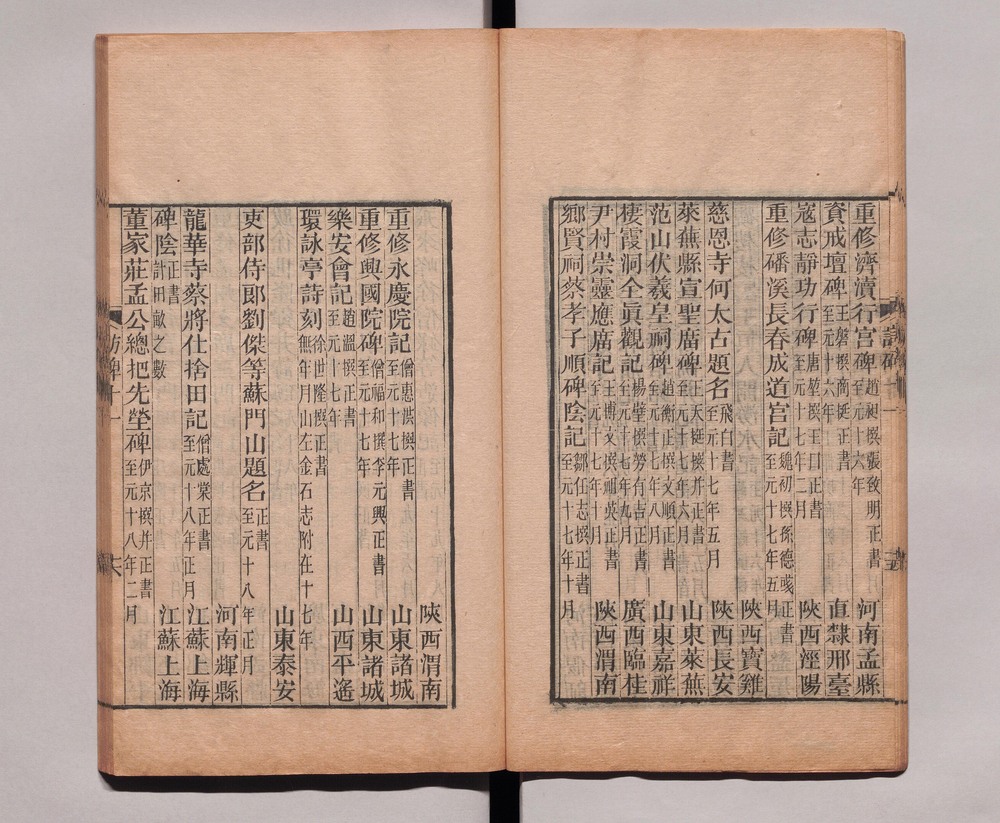 重修濟瀆行宮碑 趙昶撰張致明正書 至元十六年 河南孟縣
資戒壇碑 王磐撰商挺正書 至元十六年 直隸邢臺
寇志靜功行碑 唐堃撰王曰正書 至元十七年二月 陝西涇陽
重修磻溪長春成道宮記 魏初撰孫德彧正書 至元十七年五月
陝西寶雞
慈恩寺何太古題名 飛白書 至元十七年五月 陝西長安
萊蕪縣宣聖廟碑 王天挺撰并正書 至元十七年六月 山東萊蕪
范山伏羲皇祠碑 趙衡正撰文順正書 至元十七年八月 山東嘉祥
棲霞洞全眞觀記 楊璧撰勞有吉正書 至元十七年九月 廣西臨桂
尹村崇靈應廟記 王博文撰祖英正書 至元十七年十月 陝西渭南
鄉賢祠蔡孝子順碑陰記 鄒任志撰正書 至元十七年十月
陝西渭南
重修永慶院記 僧惠洪撰正書 至元十七年 山東諸城
重修興國院碑 僧福和撰李元興正書 至元十七年 山東諸城
樂安會記 趙溫撰正書 至元十七年 山西平遙
環詠亭詩刻 徐世隆撰正書 無年月山左金石志附在十七年
山東泰安
吏部侍郎劉傑等蘇門山題名 正書 至元十八年正月
河南輝縣
龍華寺蔡將仕捨田記 僧處棠正書 至元十八年正月 江蘇上海
碑陰 正書 計田畝之數 江蘇上海
董家莊孟公總把先塋碑 伊京撰并正書 至元十八年二月
訪碑十一
五
訪碑十一
六